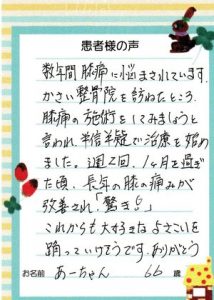 患者様の声
数年間膝痛に悩まされています。
かさい整骨院を訪ねたところ、
膝痛の施術をしてみましょうと
言われ、半信半疑で治療を始め
ました。週2回、1ヶ月を過ぎ
た頃、長年の膝の痛みが
改善され「驚き!」
これからも大好きなよさこいを
踊っていけそうです。ありがとう
お名前 あーちゃん 66 歳